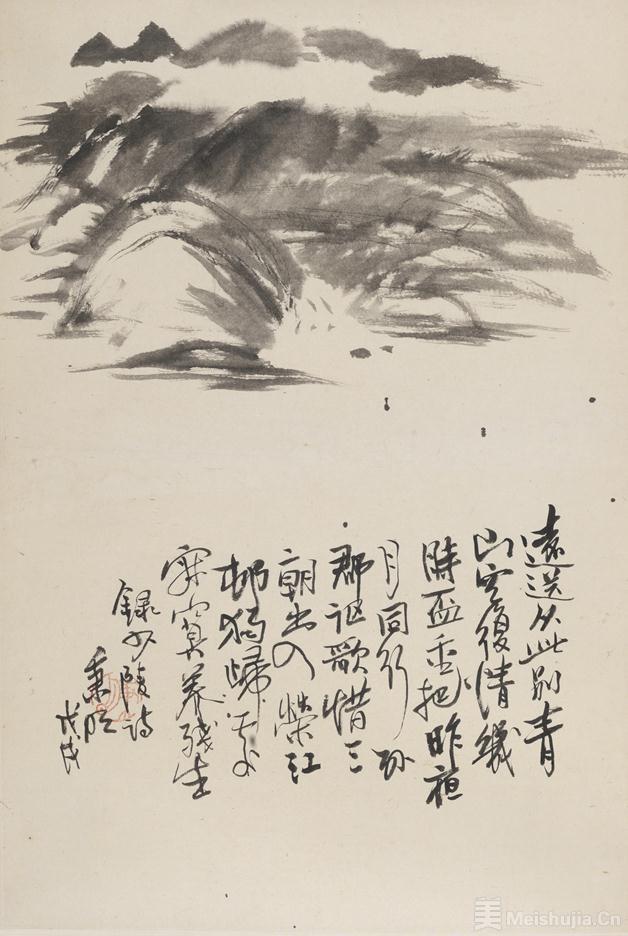 遠送从此別青
山空復情幾
時盃重把昨夜
月同行列
郡讴歌惜三
朝出入榮江
邨獨歸处
寂寞养殘生
録少陵诗
秉明
戊戌
美 Meishujia.Cn